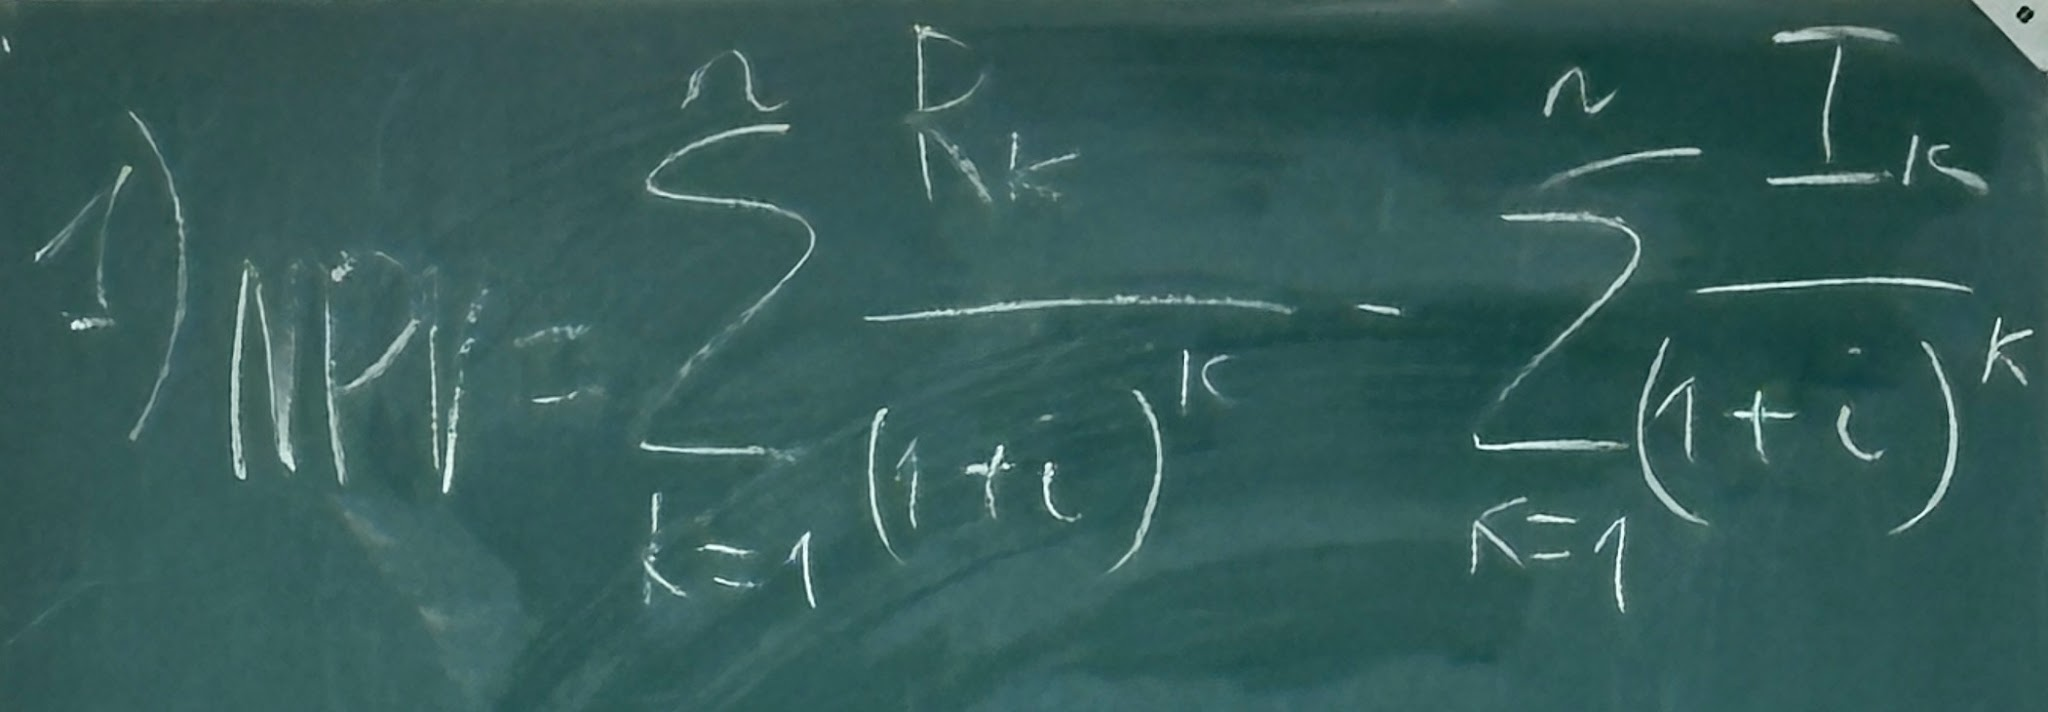 1) NPV = \sum_{k=1}^{n} \frac{R_k}{(1+i)^k} - \sum_{k=1}^{n} \frac{I_k}{(1+i)^k}